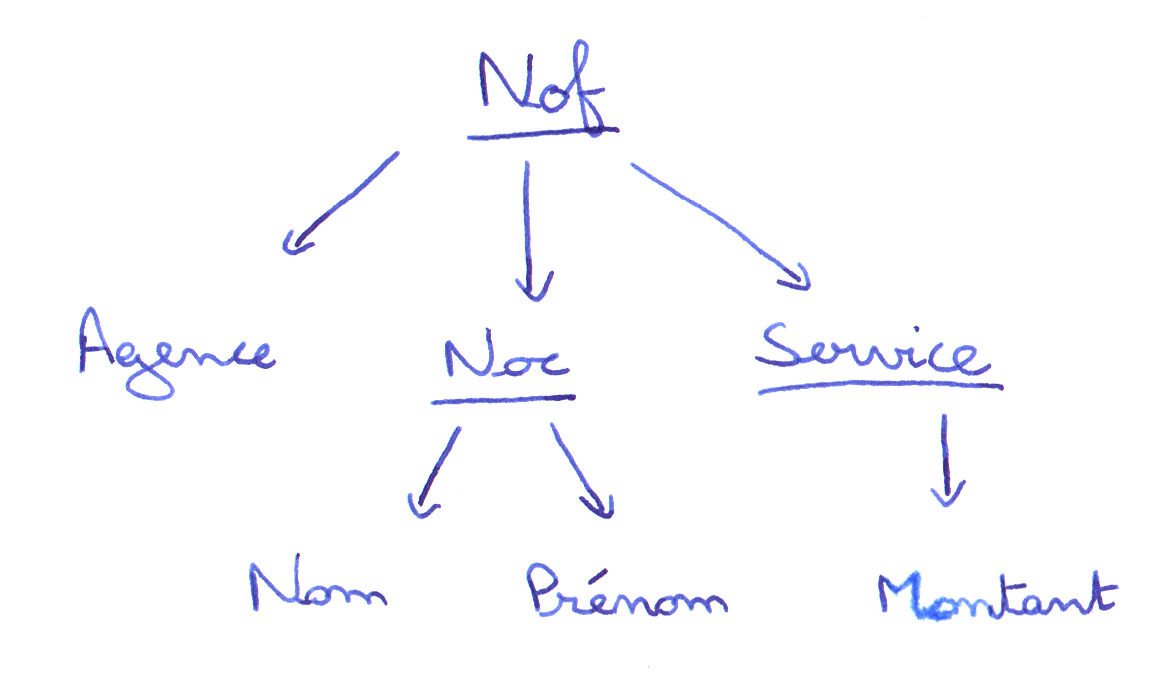 Nof
Agence Noc Service
Nom Prénom Montant